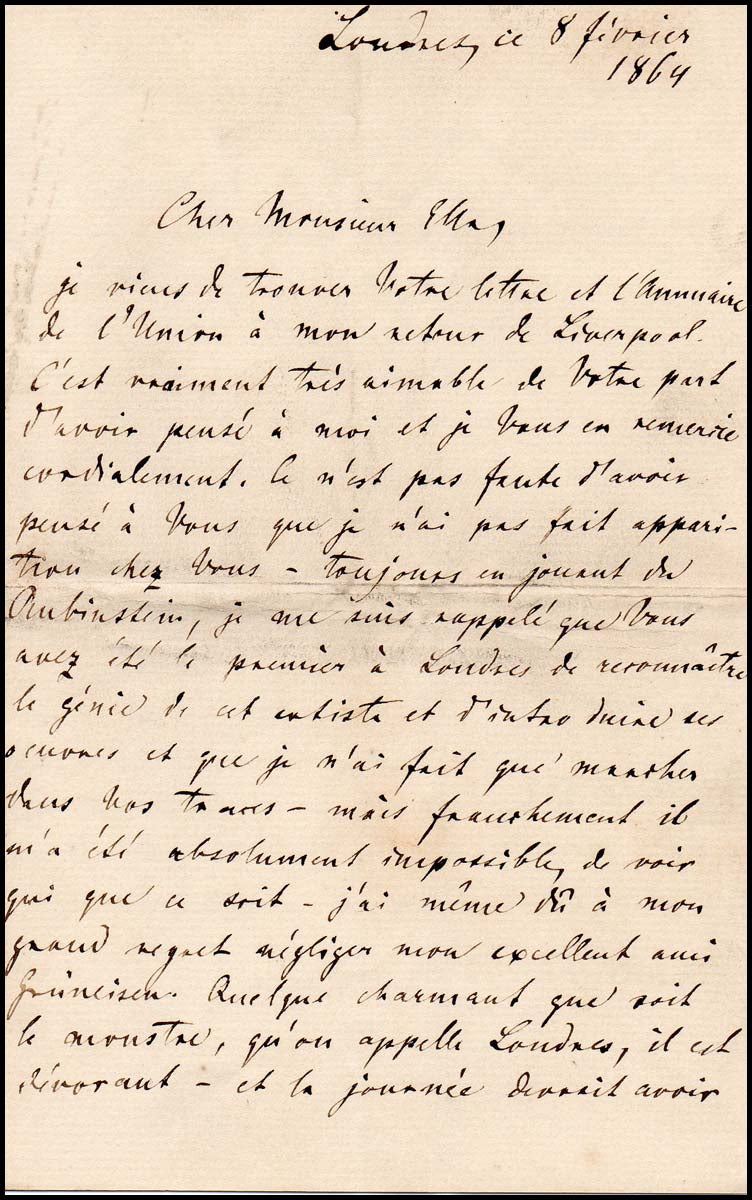 Londres, ce 8 février
1864
Cher Monsieur Ella,
je viens de trouver Votre lettre et l'Annuaire
de l'Union à mon retour de Liverpool.
C'est vraiment très aimable de Votre part
d'avoir pensé à moi et je Vous en remercie
cordialement. Ce n'est pas faute d'avoir
pensé à Vous que je n'ai pas fait appari-
tion chez Vous – toujours en jouant du
Rubinstein, je me suis rappelé que Vous
avez été le premier à Londres de reconnaître
le génie de cet artiste et d'introduire ses
oeuvres et que je n'ai fait que marcher
dans Vos traces – mais franchement il
m'a été absolument impossible, de voir
qui que ce soit – j'ai même dû à mon
grand regret négliger mon excellent ami
Grüneisen. Quelque charmant que soit
le monstre, qu'on appelle Londres, il est
dévorant – et la journée devrait avoir